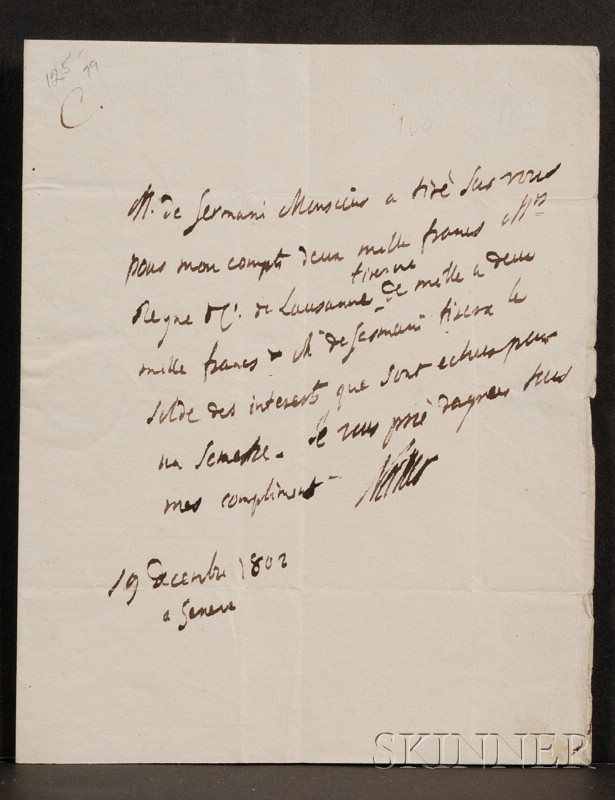 125 99
C.
100
M. de Germani Monsieur a tiré sur vous
pour mon compt deux mille francs Mrs
tirerne
Regne & Ce. de Lausanne de mille a deux
mille francs & Mr de Germani tirera le
solde des interest que sont echus pour
un semestre. Je vous prie dagreer tous
mes compliment
Necker
19 decembre 1802
a Geneve
SKINNER